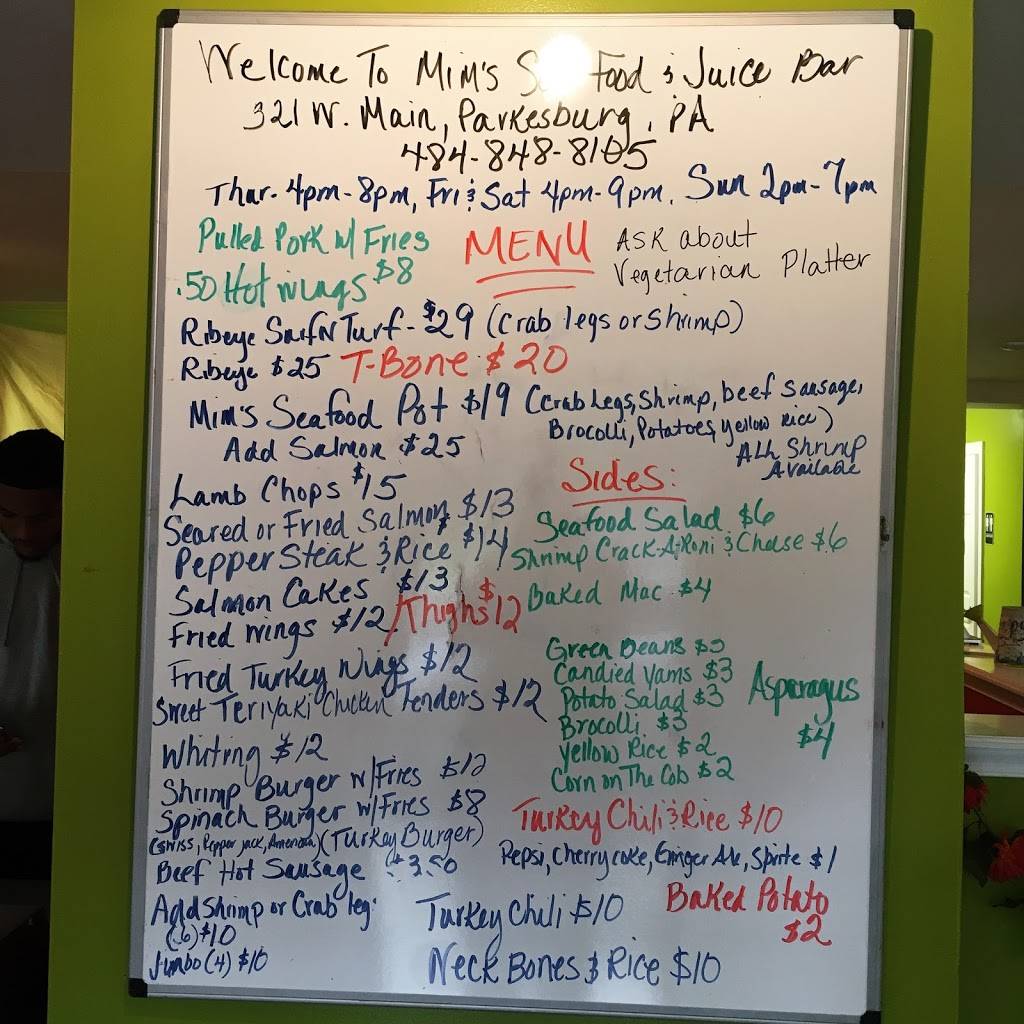 Welcome To Mim's Food & Juice Bar
321 W. Main, Parkesburg, PA
484-848-8105
Thur. 4pm-8pm, Fri & Sat 4pm-9pm. Sun 2pm-7pm
Pulled Pork w/ Fries $8
MENU
Ask about
Vegetarian Platter
.50 Hot wings
Ribeye Surf N Turf - $29 (Crab legs or Shrimp)
Ribeye $25 T-Bone $20
Mim's Seafood Pot $19 (Crab Legs, Shrimp, beef sausage,
Brocolli, Potatoes, yellow Rice)
Add Salmon $25
All Shrimp
Available
Lamb Chops $15
Seared or Fried Salmon $13
Pepper Steak & Rice $14
Salmon Cakes $13
Fried wings $12 / Thighs $12
Fried Turkey Wings $12
Sweet Teriyaki Chicken Tenders $12
Whiting $12
Shrimp Burger w/ Fries $12
Spinach Burger w/ Fries $8
(Swiss, Pepper jack, American) (Turkey Burger)
Beef Hot Sausage $3.50
Add Shrimp or Crab leg:
(6) $10
Jumbo (4) $10
Sides:
Seafood Salad $6
Shrimp Crack-A-Roni & Chese $6
Baked Mac $4
Green Beans $3
Candied Yams $3
Potato Salad $3
Brocolli $3
Yellow Rice $2
Corn on The Cob $2
Asparagus
$4
Turkey Chili & Rice $10
Pepsi, Cherry coke, Ginger Ale, Sprite $1
Baked Potato
$2
Turkey Chili $10
Neck Bones & Rice $10